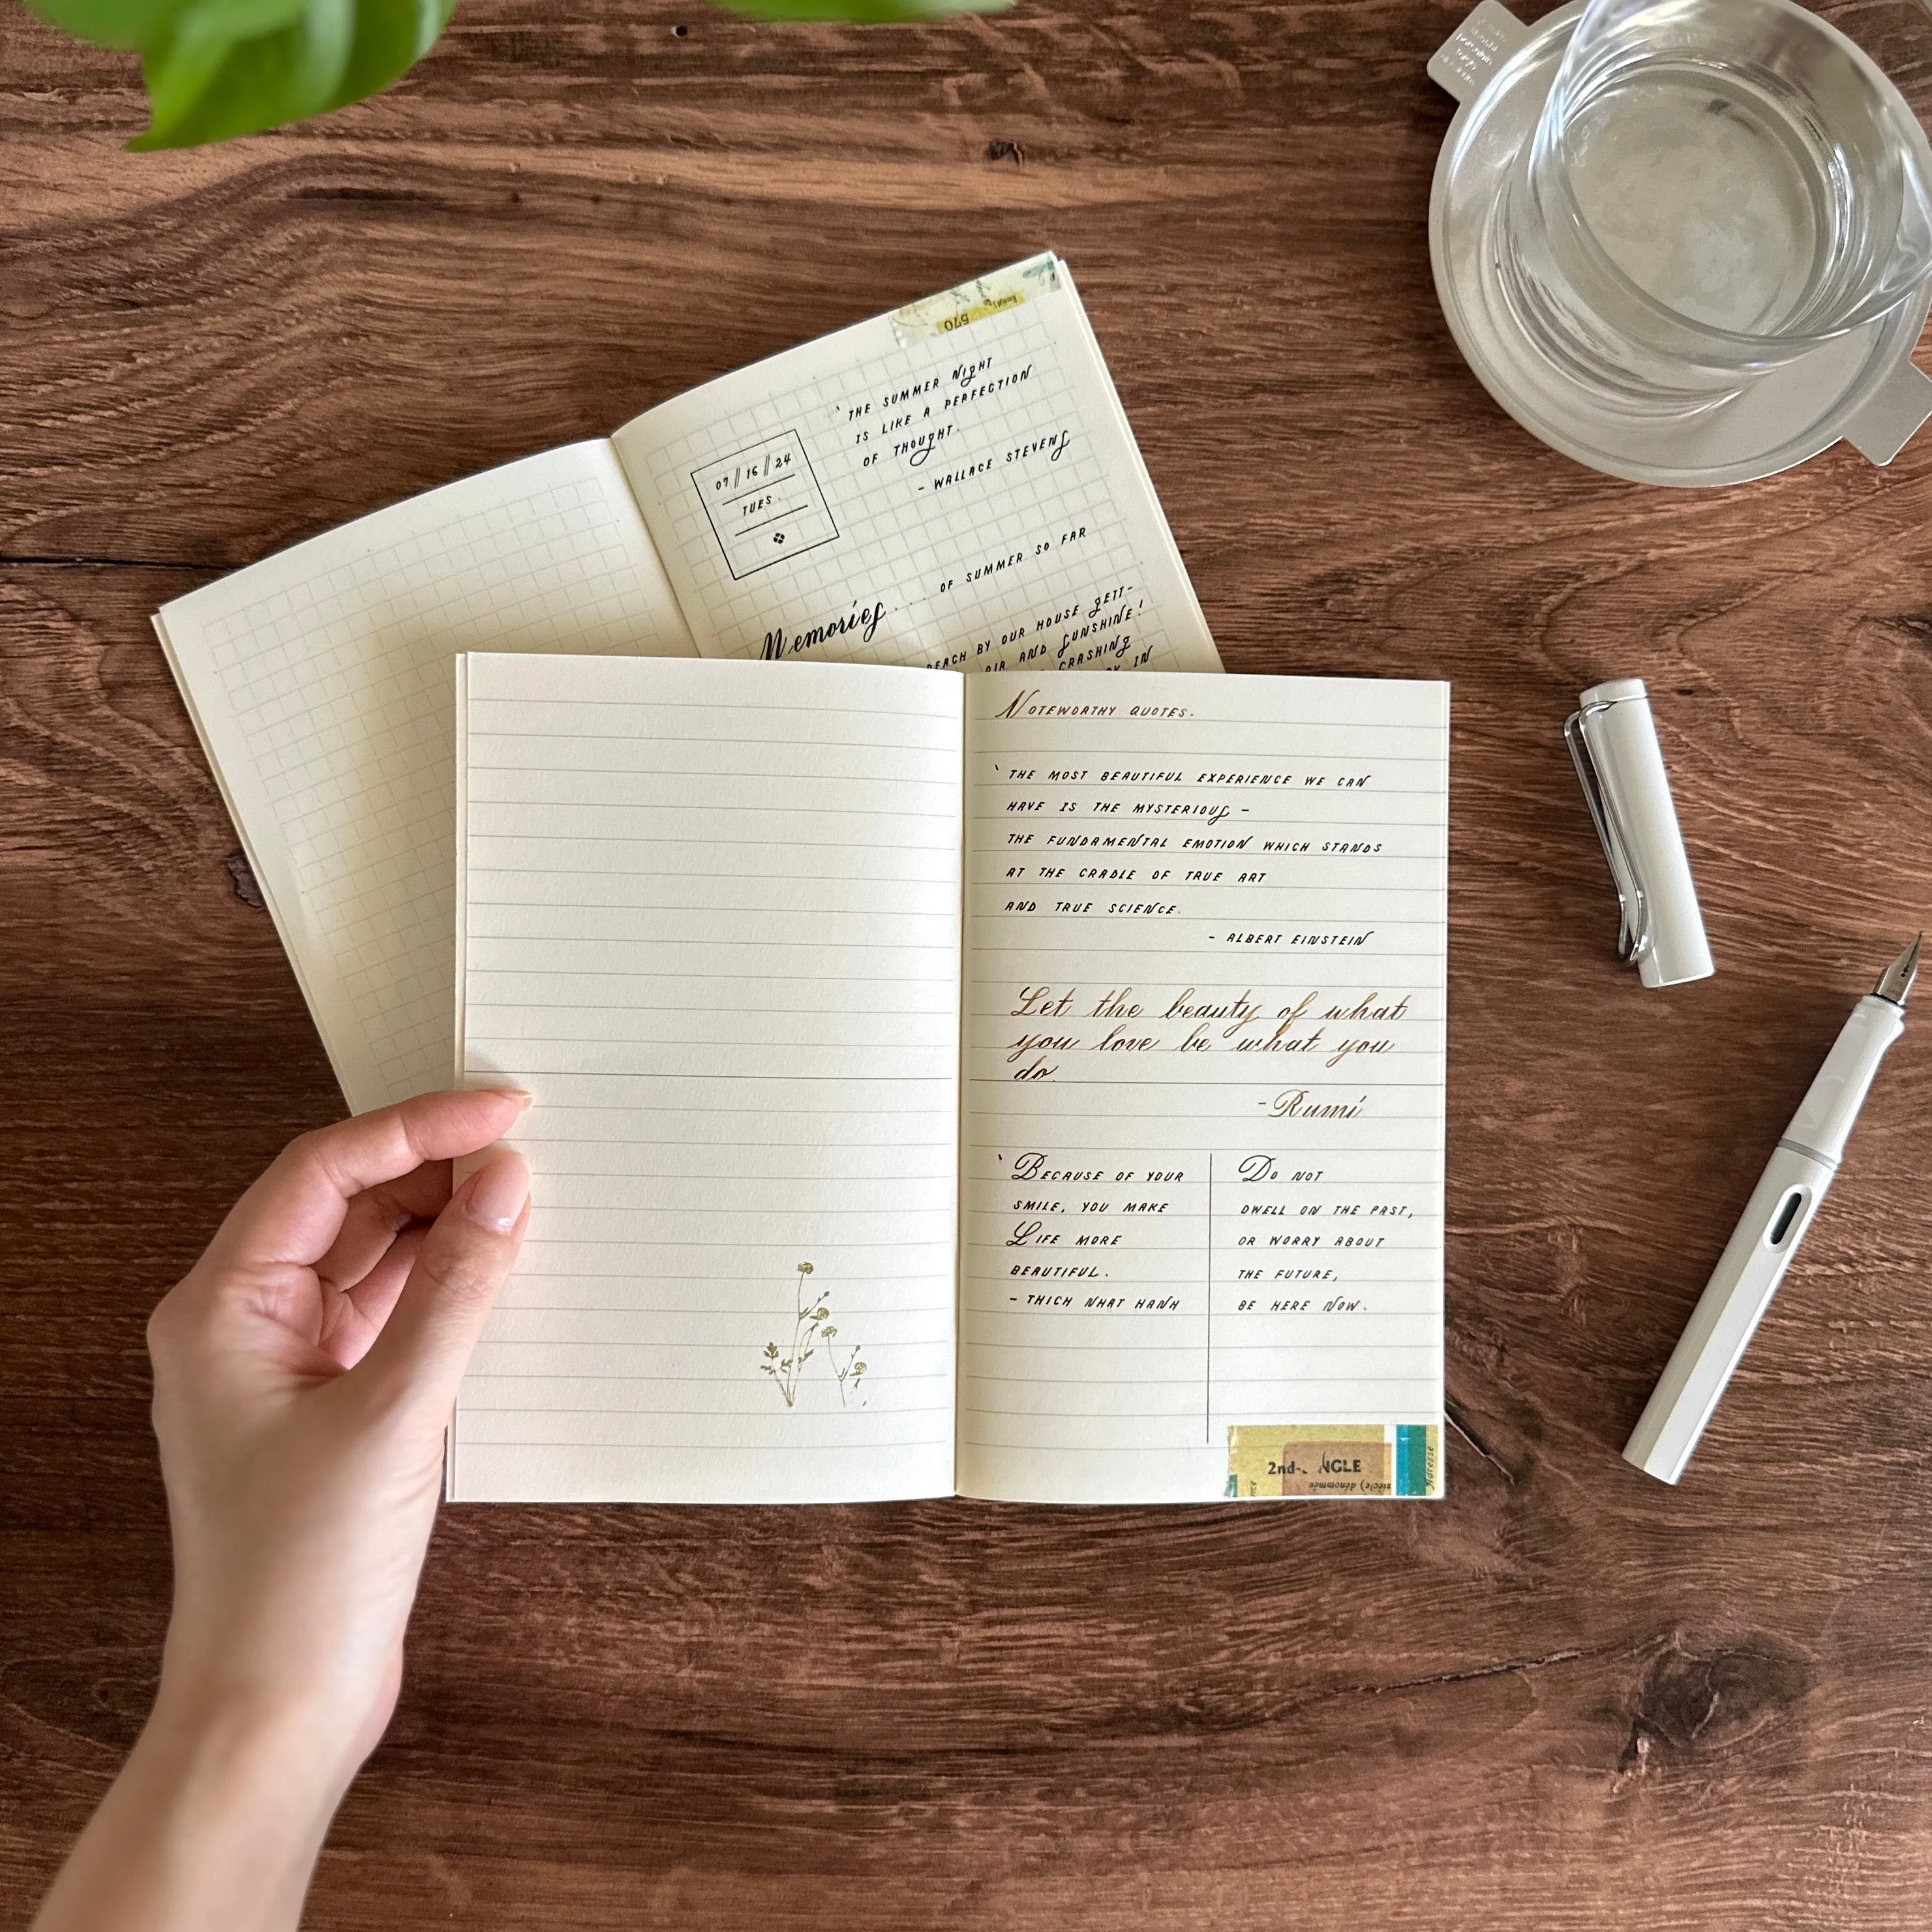 570
' THE SUMMER NIGHT
IS LIKE A PERFECTION
OF THOUGHT.
- WALLACE STEVENS
07 // 16 // 24
TUES.
Memories .... OF SUMMER SO FAR
BEACH BY OUR HOUSE GETT-
AIR AND SUNSHINE!
CRASHING
IN
NOTEWORTHY QUOTES.
' THE MOST BEAUTIFUL EXPERIENCE WE CAN
HAVE IS THE MYSTERIOUS -
THE FUNDAMENTAL EMOTION WHICH STANDS
AT THE CRADLE OF TRUE ART
AND TRUE SCIENCE.
- ALBERT EINSTEIN
Let the beauty of what
you love be what you
do.
- Rumi
' BECAUSE OF YOUR
SMILE, YOU MAKE
LIFE MORE
BEAUTIFUL.
- THICH NHAT HANH
DO NOT
DWELL ON THE PAST,
OR WORRY ABOUT
THE FUTURE,
BE HERE NOW.
2nd-
NGLE
siècle) dénommée
Adresse